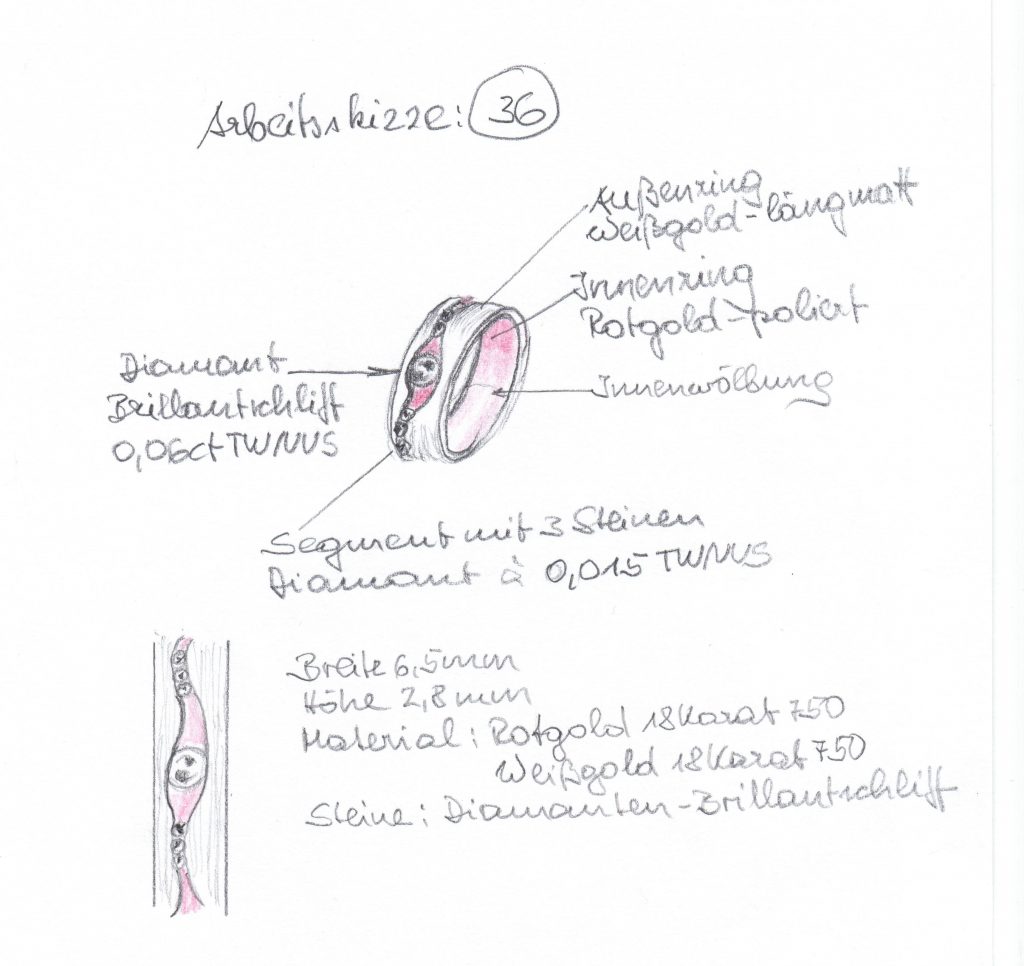 Arbeitsskizze: 36
Außenring
Weißgold-längmatt
Innenring
Rotgold-poliert
Innenwölbung
Diamant
Brillantschliff
0,06ct TW/VVS
Segment mit 3 Steinen
Diamant à 0,015 TW/VVS
Breite 6,5mm
Höhe 2,8mm
Material: Rotgold 18Karat 750
Weißgold 18Karat 750
Steine: Diamanten-Brillantschliff